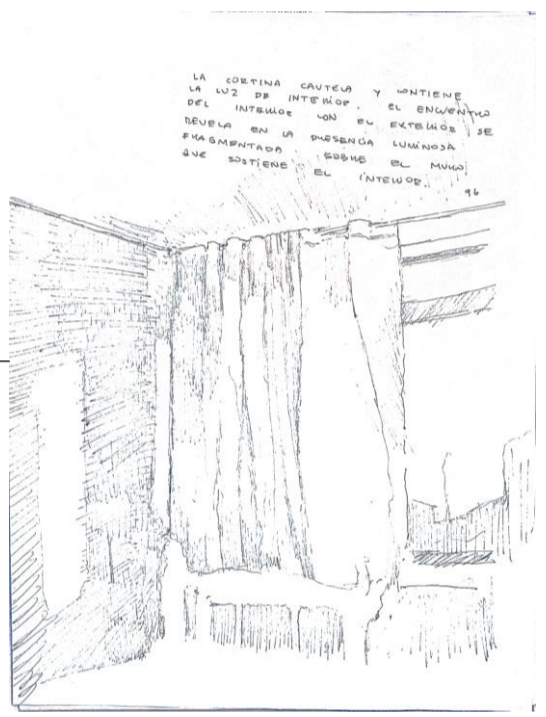 LA CORTINA CAUTELA Y CONTIENE
LA LUZ DE INTERIOR. EL ENCUENTRO
DEL INTERIOR CON EL EXTERIOR SE
REVELA EN LA PRESENCIA LUMINOSA
FRAGMENTADA SOBRE EL MURO
QUE SOSTIENE EL INTERIOR.
96